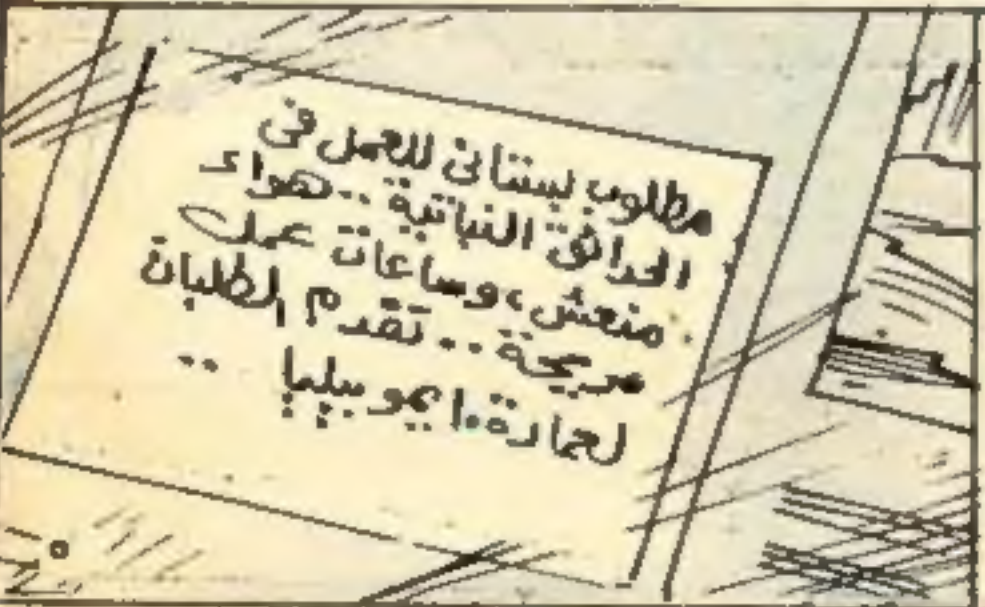 مطلوب بستانى للعمل فى
الحدائق النباتية .. هواء
منعش ، وساعات عمل
مريحة .. تقدم الطلبات
لعمارة ايموبيليا ..